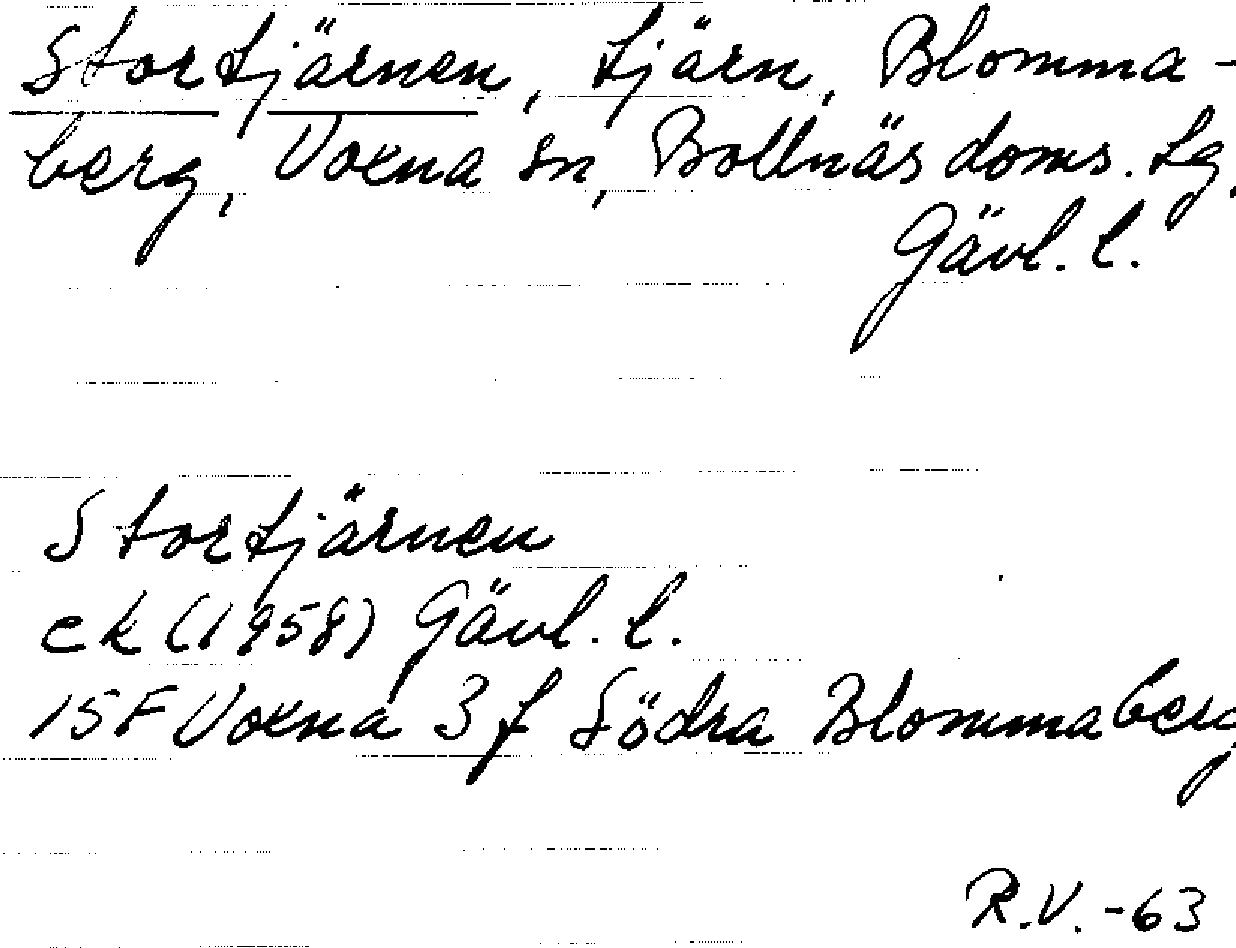 Stortjärnen, tjärn, Blomma-
berg, Voxna sn, Bollnäs doms. tg,
Gävl. l.
Stortjärnen
ek (1958) Gävl. l.
15F Voxna 3 f Södra Blommaberg
R.V. -63